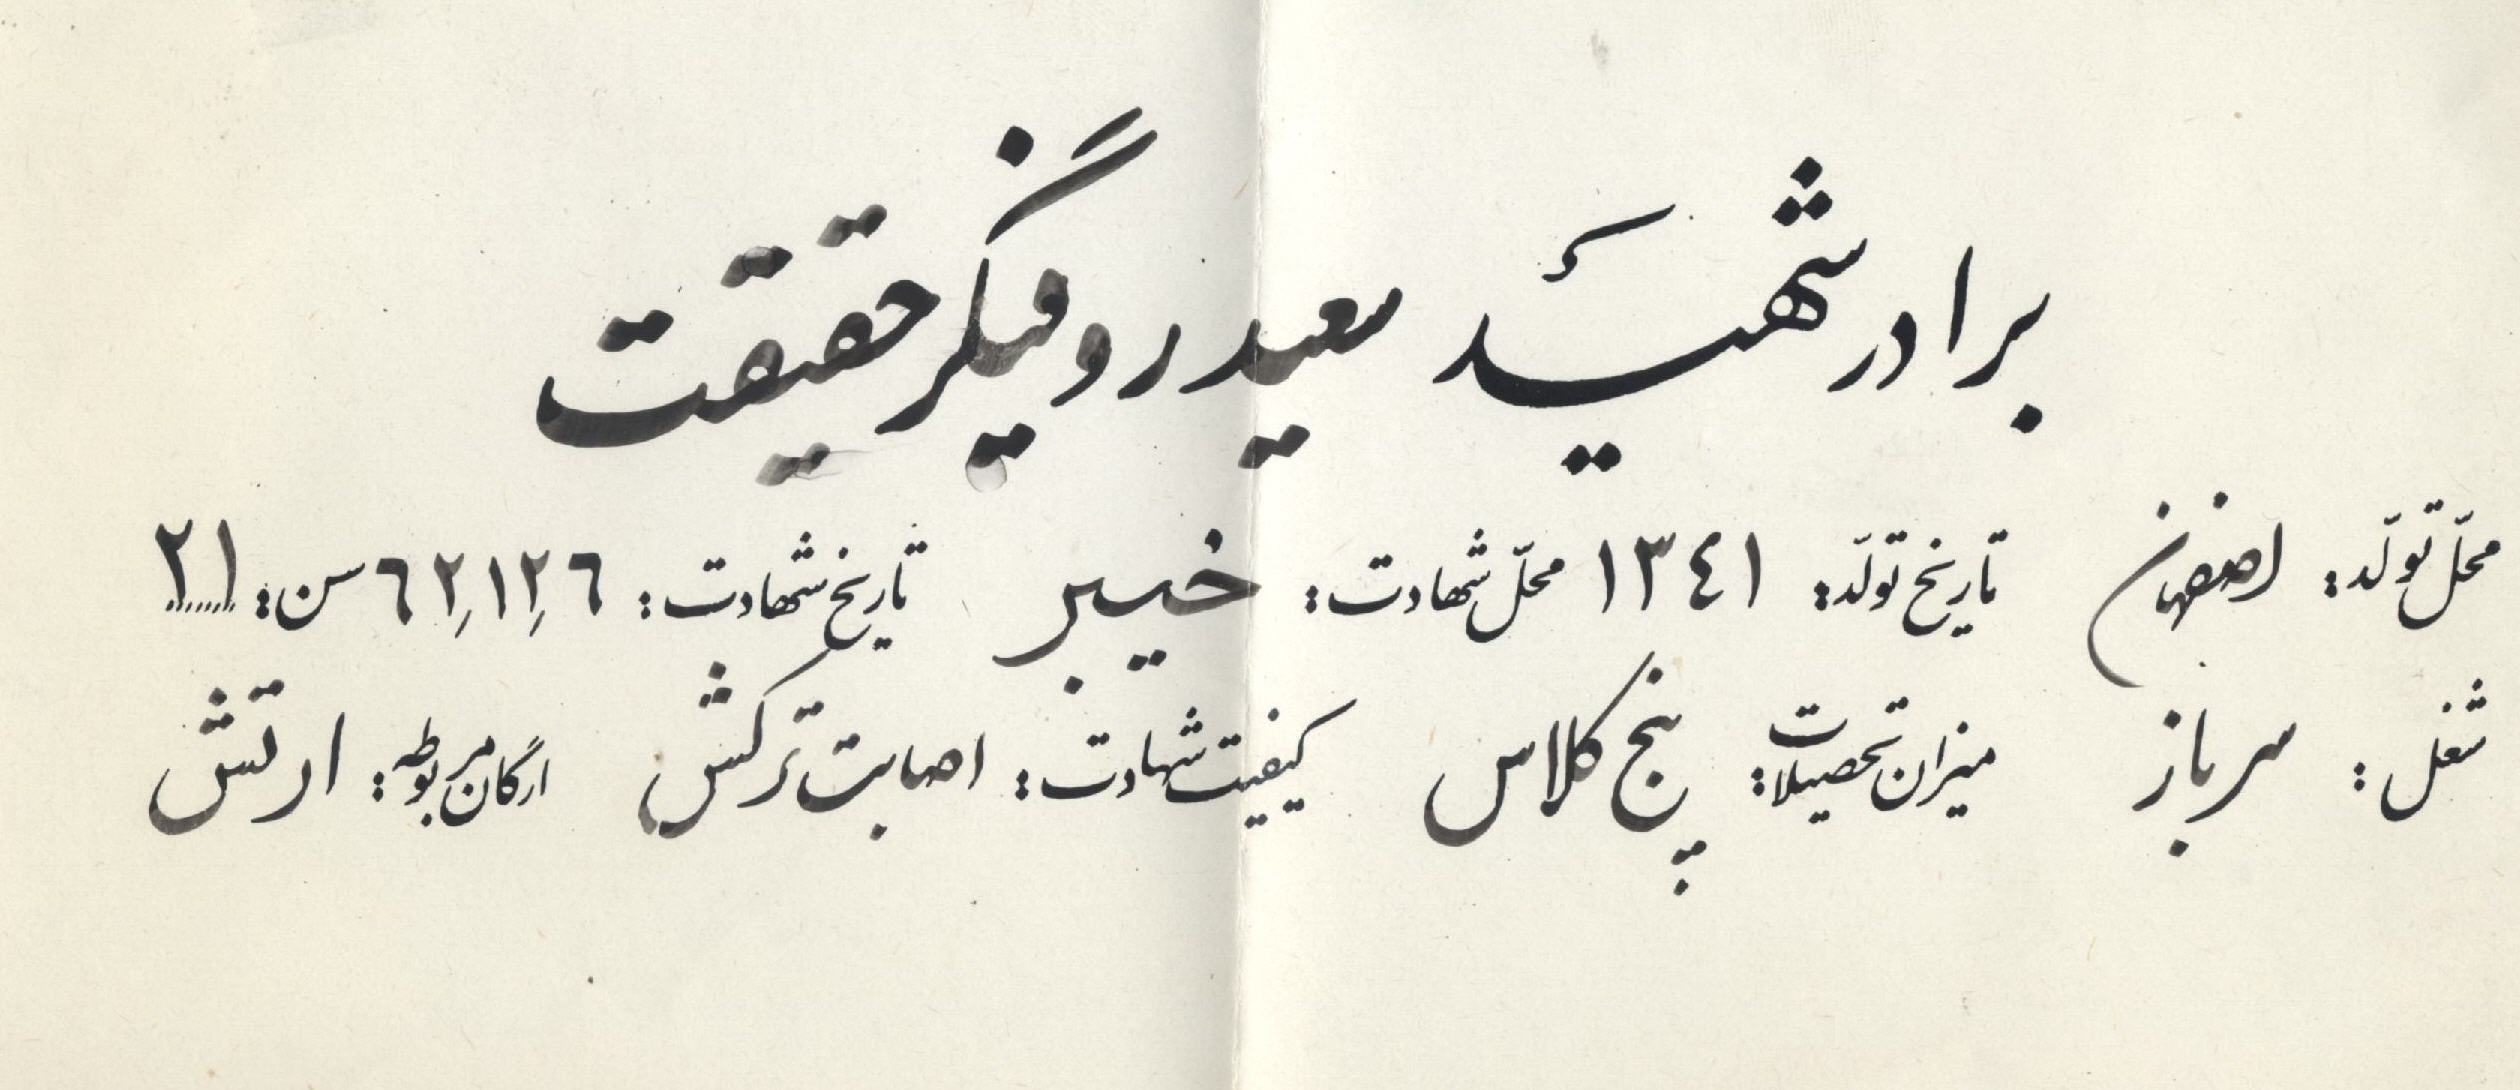 برادر شهید سعید روفیگر حقیقت
محلّ تولّد: اصفهان تاریخ تولّد: ١٣٤١ محلّ شهادت: خیبر تاریخ شهادت: ٦٢,١٢,٦ سن: ٢١
شغل: سرباز میزان تحصیلات: پنج کلاس کیفیت شهادت: اصابت ترکش ارگان مربوطه: ارتش